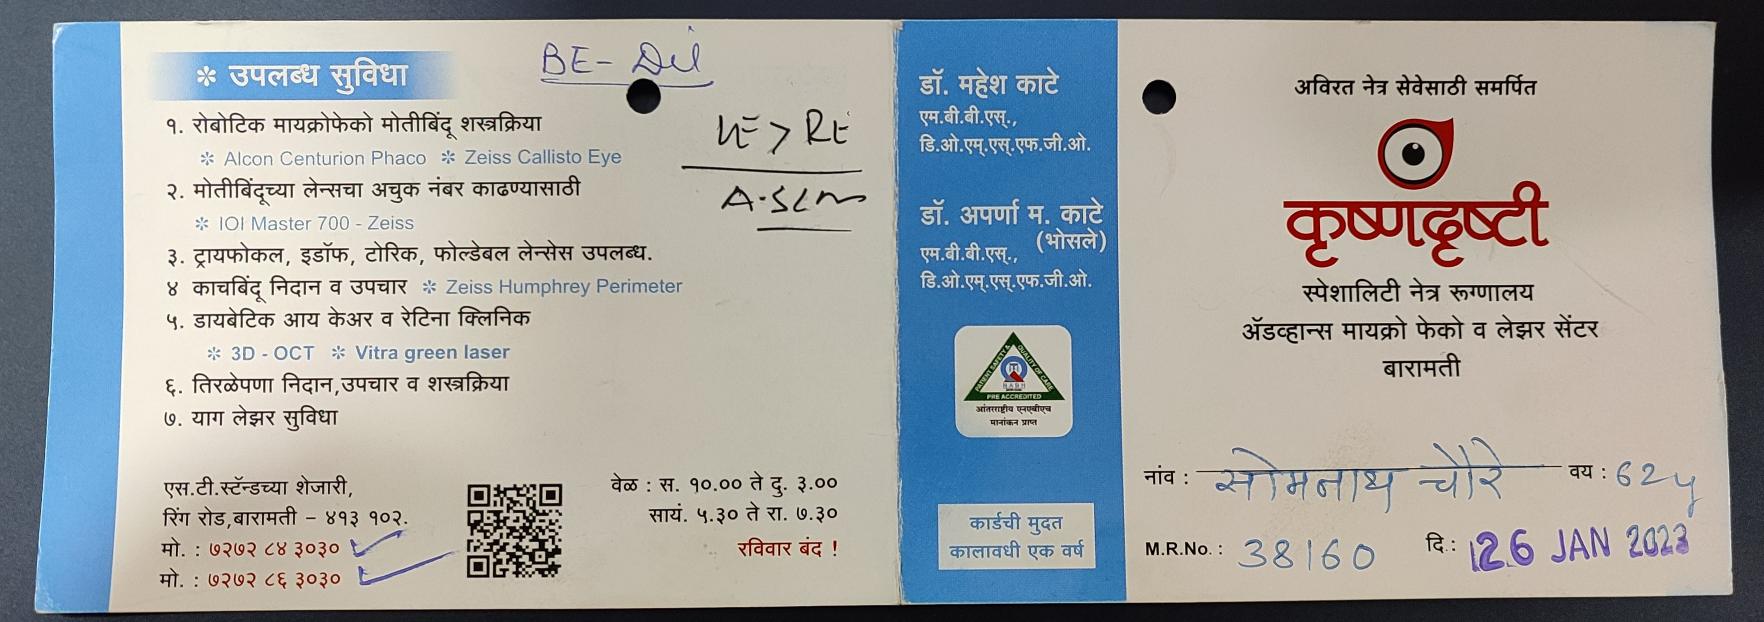 BE - Dil
* उपलब्ध सुविधा
LE > RE
१. रोबोटिक मायक्रोफेको मोतीबिंदू शस्त्रक्रिया
* Alcon Centurion Phaco * Zeiss Callisto Eye
२. मोतीबिंदूच्या लेन्सचा अचुक नंबर काढण्यासाठी
* IOI Master 700 - Zeiss
३. ट्रायफोकल, इडॉफ, टोरिक, फोल्डेबल लेन्सेस उपलब्ध.
४ काचबिंदू निदान व उपचार * Zeiss Humphrey Perimeter
५. डायबेटिक आय केअर व रेटिना क्लिनिक
* 3D - OCT * Vitra green laser
६. तिरळेपणा निदान,उपचार व शस्त्रक्रिया
७. याग लेझर सुविधा
एस.टी.स्टॅन्डच्या शेजारी,
रिंग रोड,बारामती – ४१३ १०२.
मो. : ७२७२ ८४ ३०३०
मो. : ७२७२ ८६ ३०३०
वेळ : स. १०.०० ते दु. ३.००
सायं. ५.३० ते रा. ७.३०
रविवार बंद !
डॉ. महेश काटे
एम.बी.बी.एस्.,
डि.ओ.एम्.एस्.एफ.जी.ओ.
डॉ. अपर्णा म. काटे
(भोसले)
एम.बी.बी.एस्.,
डि.ओ.एम्.एस्.एफ.जी.ओ.
PATIENT SAFETY & QUALITY OF CARE
NABH
PRE ACCREDITED
आंतरराष्ट्रीय एनएबीएच
मानांकन प्राप्त
कार्डची मुदत
कालावधी एक वर्ष
अविरत नेत्र सेवेसाठी समर्पित
कृष्णदृष्टी
स्पेशालिटी नेत्र रूग्णालय
ॲडव्हान्स मायक्रो फेको व लेझर सेंटर
बारामती
नांव : सोमनाथ चौरे वय : 62y
M.R.No. : 38160 दि : 26 JAN 2023